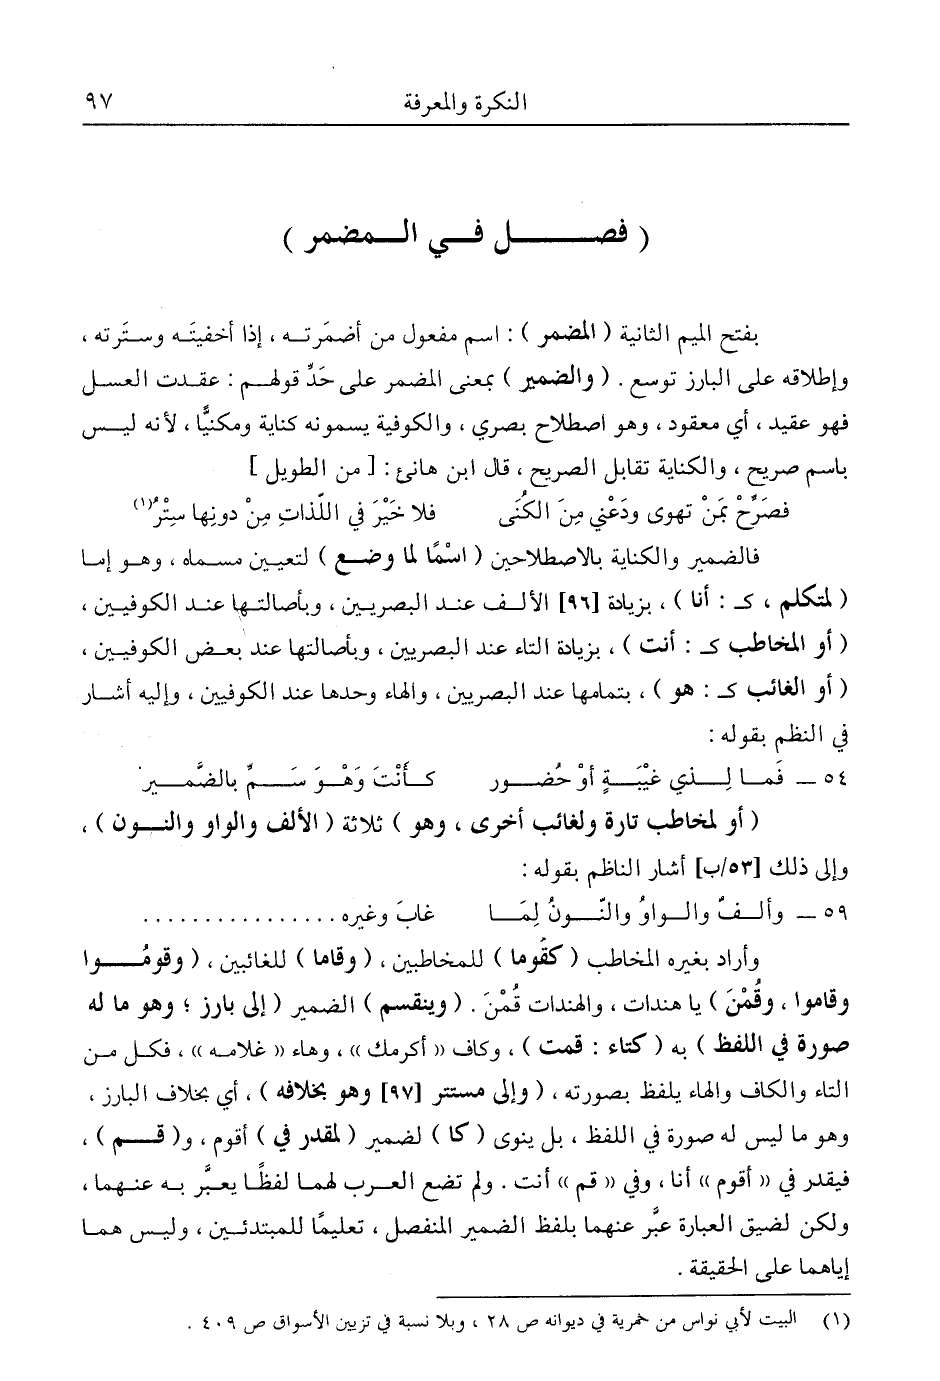 النكرة والمعرفة ٩٧
( فصــــل فــي الــمضمر )
بفتح الميم الثانية ( المضمر ) : اسم مفعول من أضمَرتــه ، إذا أخفيتَــه وستَرته ،
وإطلاقه على البارز توسع . ( والضمير ) بمعنى المضمر على حَدِّ قولهــم : عقــدت العســل
فهو عقيد ، أي معقود ، وهو اصطلاح بصري ، والكوفية يسمونه كناية ومكنيًّا ، لأنه ليــس
باسم صريح ، والكناية تقابل الصريح ، قال ابن هانئ : [ من الطويل ]
فصَرِّحْ بمَنْ تهوى ودَعْني مِنَ الكُنَى فلا خَيْرَ في اللّذاتِ مِنْ دونِها سِتْرُ(١)
فالضمير والكناية بالاصطلاحين ( اسْمًا لما وضــع ) لتعيــين مســماه ، وهــو إمــا
( لمتكلم ، كـ : أنا ) ، بزيادة [٩٦] الألــف عنــد البصريــين ، وبأصالتــها عنــد الكوفيــين ،
( أو المخاطب كـ : أنت ) ، بزيادة التاء عند البصريين ، وبأصالتها عند بعــض الكوفيــين ،
( أو الغائب كـ : هو ) ، بتمامها عند البصريين ، والهاء وحدها عند الكوفيين ، وإليه أشــار
في النظم بقوله :
٥٤ ــ فَمــا لِــذي غَيْبَــةٍ أوْ حُضــور كــأَنْتَ وَهْــوَ سَــمِّ بالضَّمــيرِ
( أو لمخاطب تارة ولغائب أخرى ، وهو ) ثلاثة ( الألف والواو والنــون ) ،
وإلى ذلك [٥٣/ب] أشار الناظم بقوله :
٥٩ ــ وألــفٌ والــواوُ والنّــونُ لِمَــا غابَ وغيره................
وأراد بغيره المخاطب ( كقُوما ) للمخاطبين ، ( وقاما ) للغائبين ، ( وقومُــــوا
وقاموا ، وقُمْنَ ) يا هندات ، والهندات قُمْنَ . ( وينقسم ) الضمير ( إلى بارز ؛ وهو ما له
صورة في اللفظ ) به ( كتاء : قمت ) ، وكاف « أكرمك » ، وهاء « غلامــه » ، فكــل مــن
التاء والكاف والهاء يلفظ بصورته ، ( وإلى مستتر [٩٧] وهو بخلافه ) ، أي بخلاف البارز ،
وهو ما ليس له صورة في اللفظ ، بل ينوى ( كا ) لضمير ( لمقدر في ) أقوم ، و( قــــم ) ،
فيقدر في « أقوم » أنا ، وفي « قم » أنت . ولم تضع العــرب لهمــا لفظًــا يعبَّر بــه عنــهما ،
ولكن لضيق العبارة عبَّر عنهما بلفظ الضمير المنفصل ، تعليمًا للمبتدئــين ، وليــس همــا
إياهما على الحقيقة .
(١) البيت لأبي نواس من خمرية في ديوانه ص ٢٨ ، وبلا نسبة في تزيين الأسواق ص ٤٠٩ .